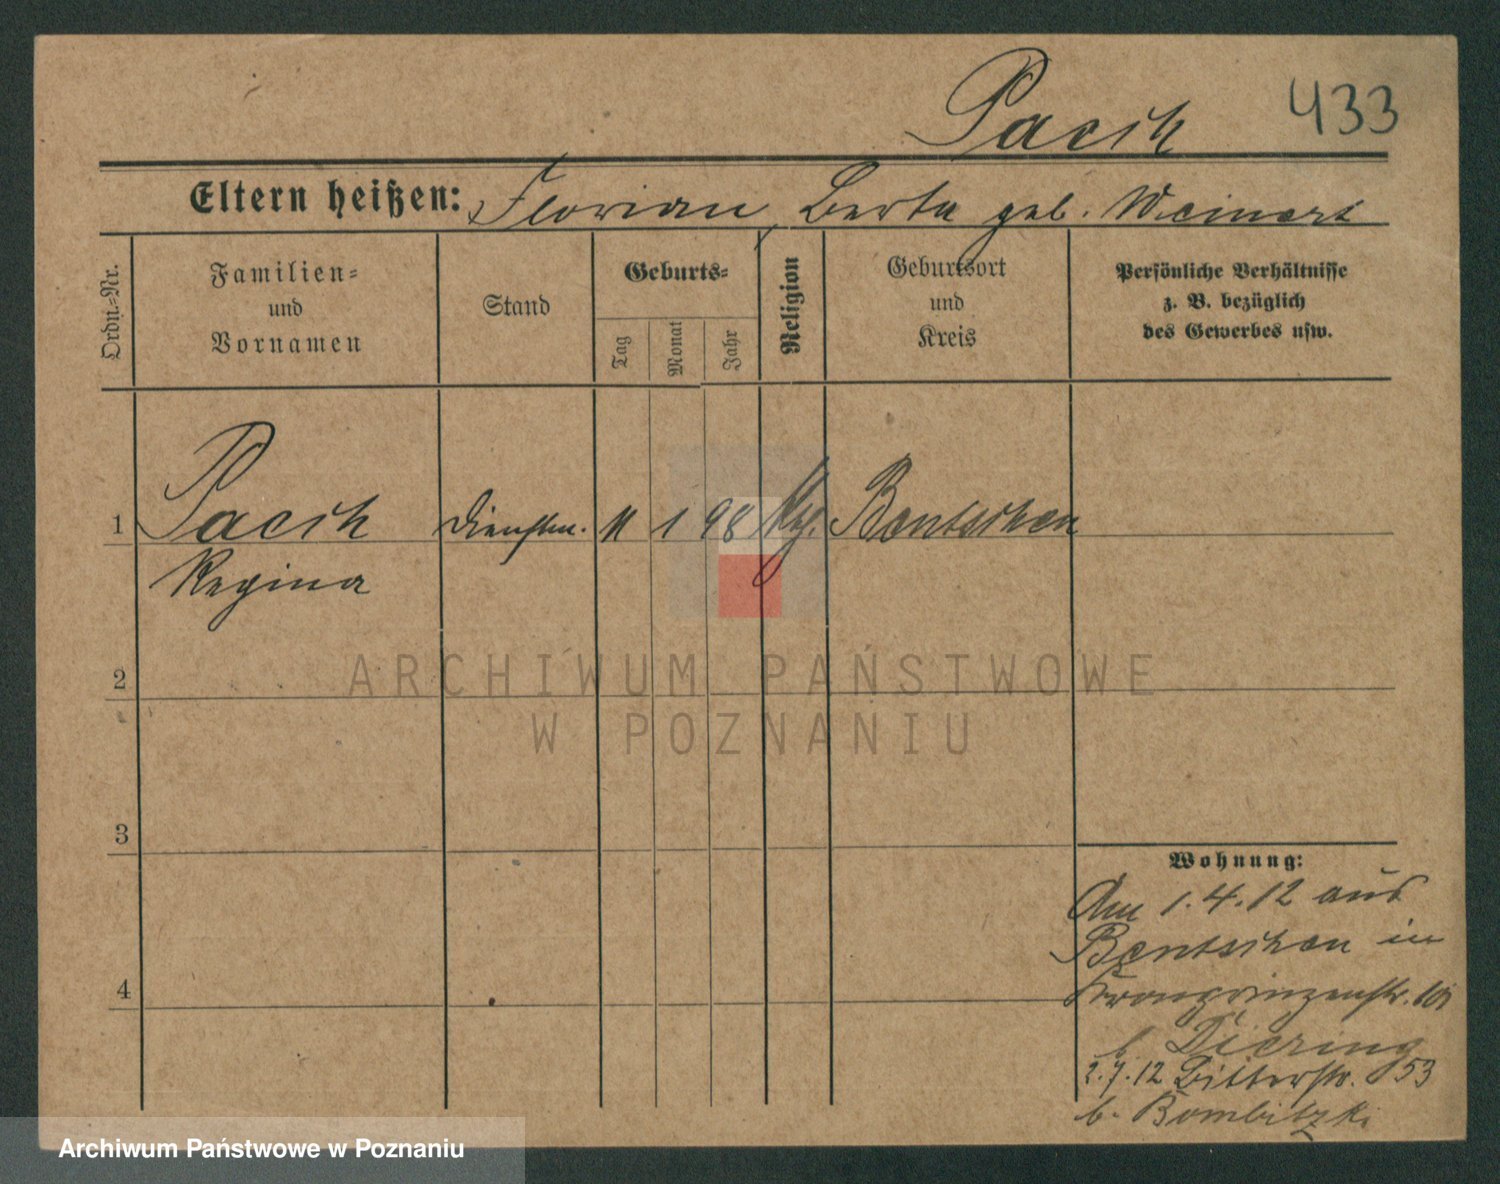 Pacih
433
Eltern heißen: Florian, Berta geb. Weinert
Ordn.=Nr.
Familien=
und
Vornamen
Stand
Geburts=
Tag
Monat
Jahr
Religion
Geburtsort
und
Kreis
Persönliche Verhältnisse
z. B. bezüglich
des Gewerbes usw.
1 Pacih Dienstm. 11 1 98 Bentschen
Regina
2
3
4
Wohnung:
Am 1.4.12 aus
Bentschen in
Kronprinzenstr.
b. Diering
2.7.12 Bitterstr. 53
b. Bombitzki
ARCHIWUM PAŃSTWOWE
W POZNANIU
Archiwum Państwowe w Poznaniu